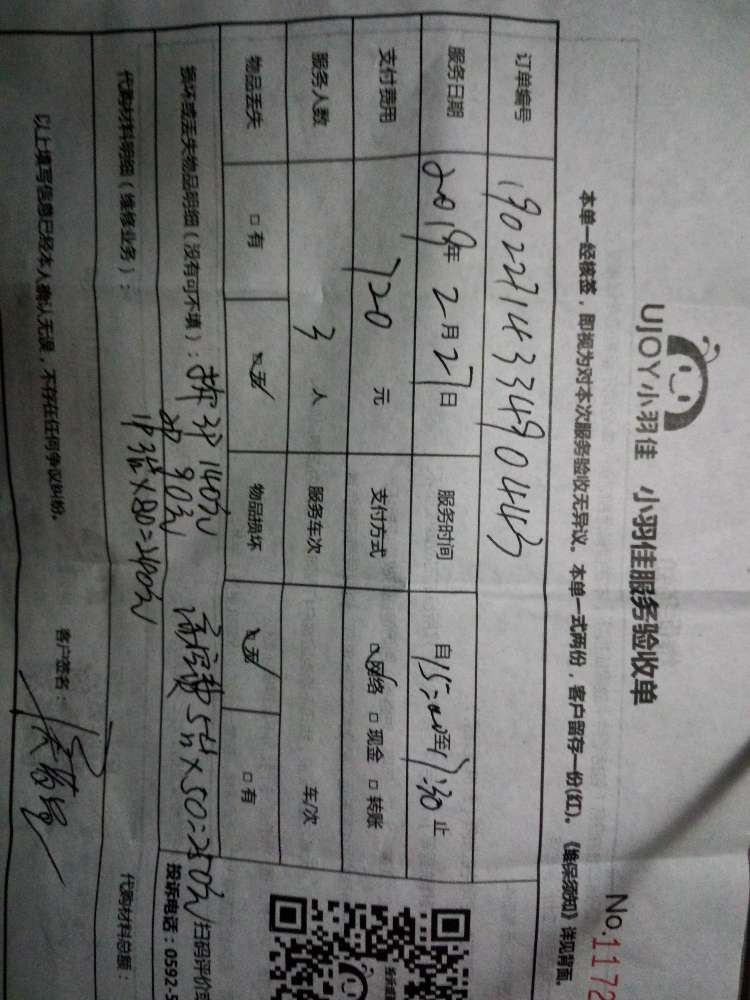 UJOY小羽佳 小羽佳服务验收单
No.1172
本单一经核签，即视为对本次服务验收无异议。本单一式两份，客户留存一份(红)。《维保须知》详见背面。
订单编号 1902271433490443
服务日期 2019年 2月27日 服务时间 自15:00至17:30止
支付费用 720 元 支付方式 ☑网络 □现金 □转账
服务人数 3 人 服务车次 车/次
物品丢失 □有 ☑无 物品损坏 ☑无 □有
损坏或丢失物品明细（没有可不填）：拆3 140元 高空费 5 x50=250元
90元
3 x80=240元
扫码评价
投诉电话：0592-5
代购材料明细（维修业务）： 代购材料总额：
以上填写信息已经本人确认无误，不存在任何争议纠纷。 客户签名：